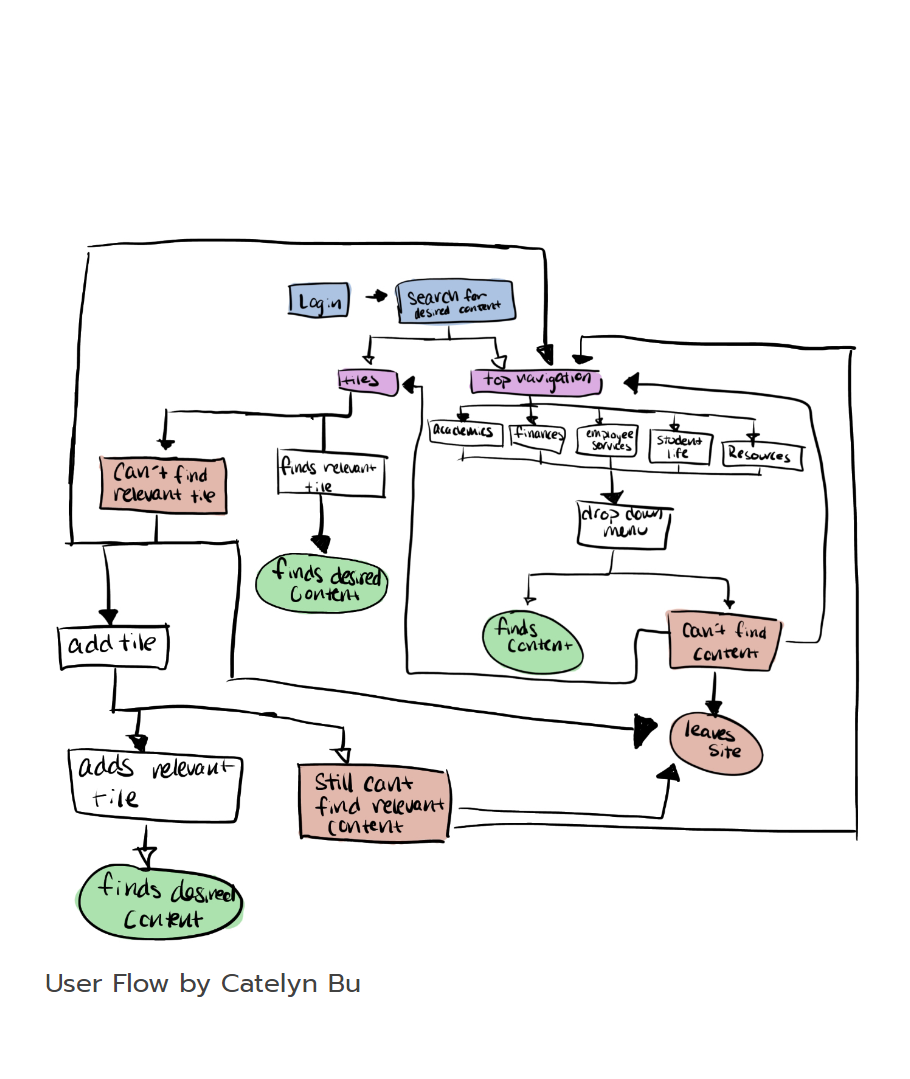 Login
Search for
desired content
tiles
top navigation
academics
finances
employee
services
student
life
Resources
Can't find
relevant tile
finds relevant
tile
drop down
menu
finds desired
content
finds
content
can't find
content
add tile
leaves
site
adds relevant
tile
Still can't
find relevant
content
finds desired
content
User Flow by Catelyn Bu